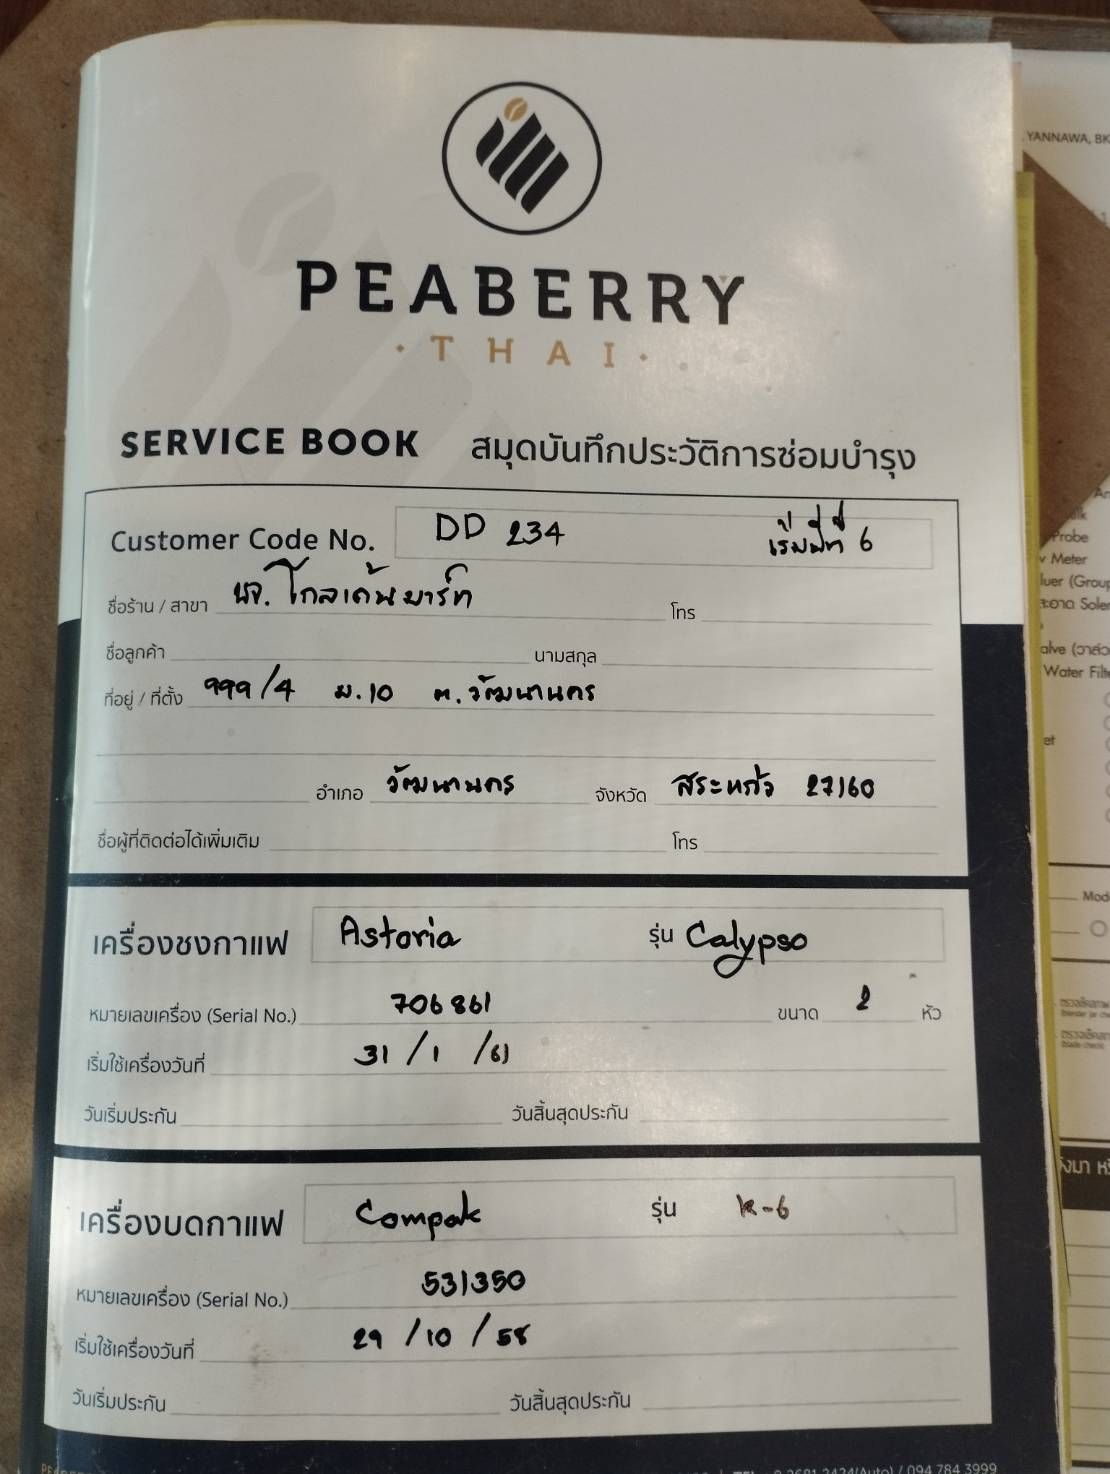 YANNAWA, BK
PEABERRY
· THAI ·
SERVICE BOOK สมุดบันทึกประวัติการซ่อมบำรุง
Customer Code No. DD 234 เริ่มปีที่ 6
ชื่อร้าน / สาขา หจ. โกลเด้นมาร์ท โทร
ชื่อลูกค้า นามสกุล
ที่อยู่ / ที่ตั้ง 999/4 ม.10 ต.วัฒนานคร
อำเภอ วัฒนานคร จังหวัด สระแก้ว 27160
ชื่อผู้ที่ติดต่อได้เพิ่มเติม โทร
เครื่องชงกาแฟ Astoria รุ่น Calypso
หมายเลขเครื่อง (Serial No.) 706861 ขนาด 2 หัว
เริ่มใช้เครื่องวันที่ 31 / 1 / 61
วันเริ่มประกัน วันสิ้นสุดประกัน
เครื่องบดกาแฟ Compak รุ่น K-6
หมายเลขเครื่อง (Serial No.) 531350
เริ่มใช้เครื่องวันที่ 29 / 10 / 58
วันเริ่มประกัน วันสิ้นสุดประกัน
Probe
Meter
(Group
Water